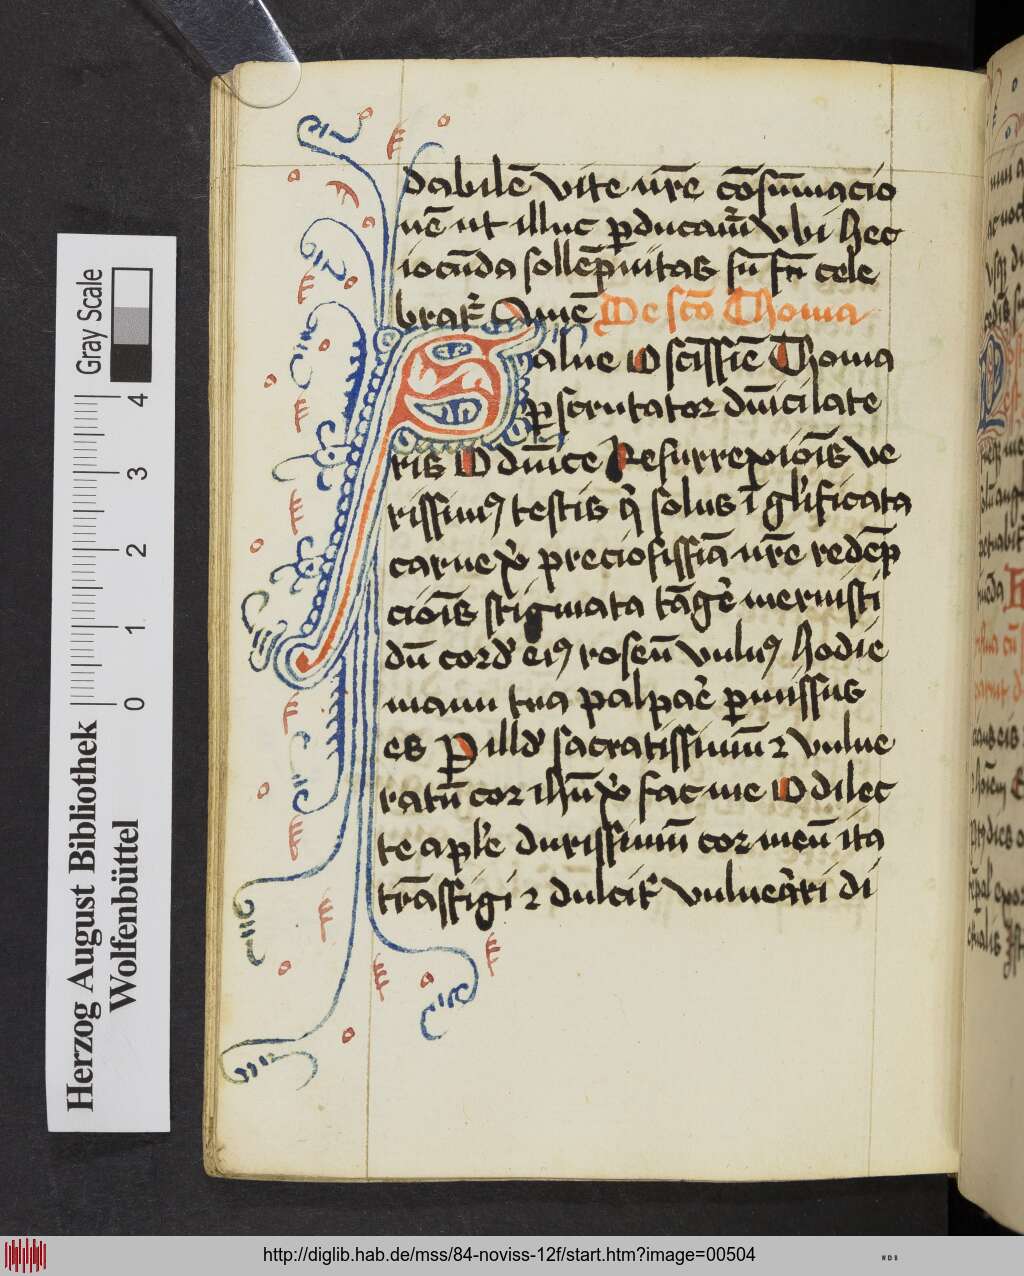 dabilē vite nr̄e cōsūmacio
nē ut illuc ꝑducam̄ vbi hec
iocūda sollēpnitas sn̄ fīn cele
brat᷑ Amē De scō Thoma
Salue O scīssīe Thoma
ꝑscrutator dīnicī late
ris O dūice Resurrexiōis ve
rissimꝰ testis q̇ solus ī gl̓ificata
carne xp̄i preciosissīa nr̄e redēp
ciōis stigmata tāge᷑ meruisti
dū cord᷑ eiꝰ roseū vulnꝰ hodie
manu tua palpar̄e ꝑmissus
es Per illd᷑ sacratissimū ⁊ vulne
ratū cor ihū xp̄i fac me O dilec
te apl̓e durissimū cor meū ita
trāsfigi ⁊ dulcit᷑ vulnerari di
Gray Scale
4
3
2
1
0
Herzog August Bibliothek
Wolfenbüttel
http://diglib.hab.de/mss/84-noviss-12f/start.htm?image=00504